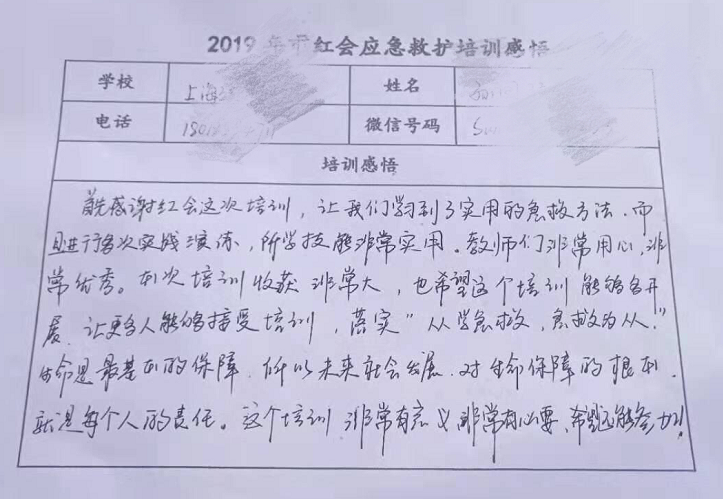 2019年市红会应急救护培训感悟
学校 上海 姓名
电话 微信号码
培训感悟
首先感谢红会这次培训，让我们学到了实用的急救方法.而
且进行多次实战演练，所学技能非常实用。教师们非常用心，非
常优秀。本次培训收获非常大，也希望这个培训能够多开
展，让更多人能够接受培训，落实“人人学急救，急救为人人.”
生命是最基本的保障，所以未来社会发展.对生命保障的根本.
就是每个人的责任。这个培训非常有意义非常有必要、希望还能参加!